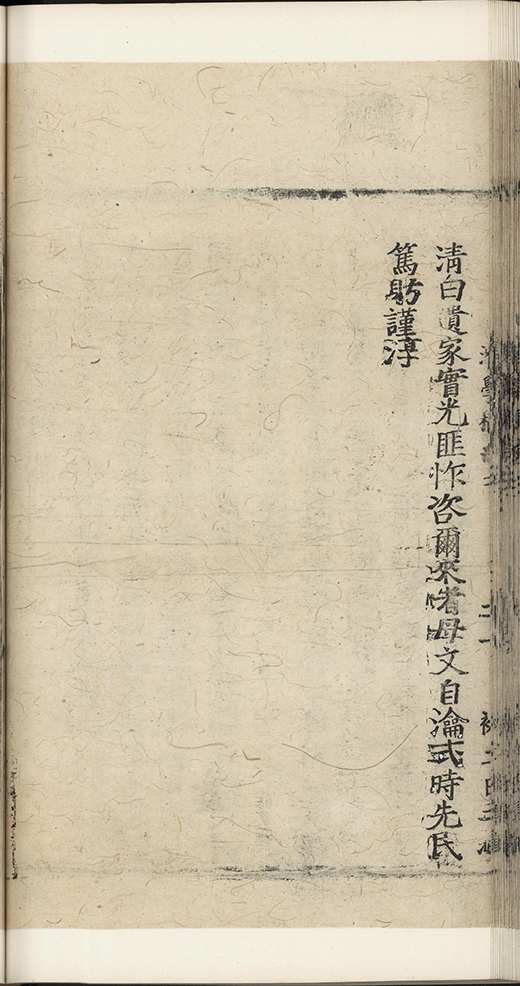 清白遺家實光匪怍咨爾來者毋文自瀹式時先民
篤躬謹淳